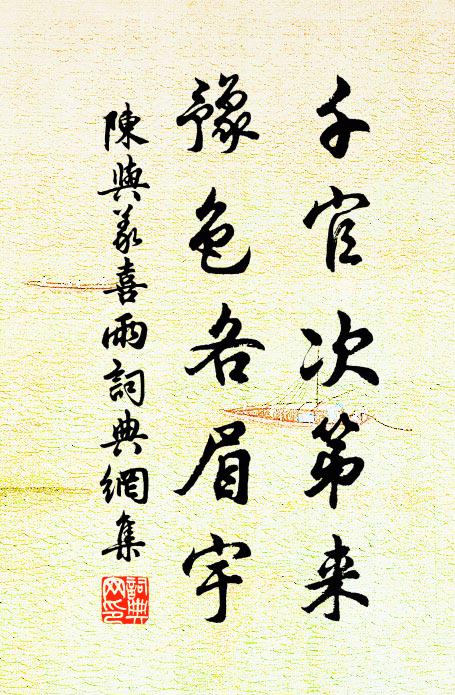 千官次第来
豫色各眉宇
陳與義喜雨詞典網集
詞典網印